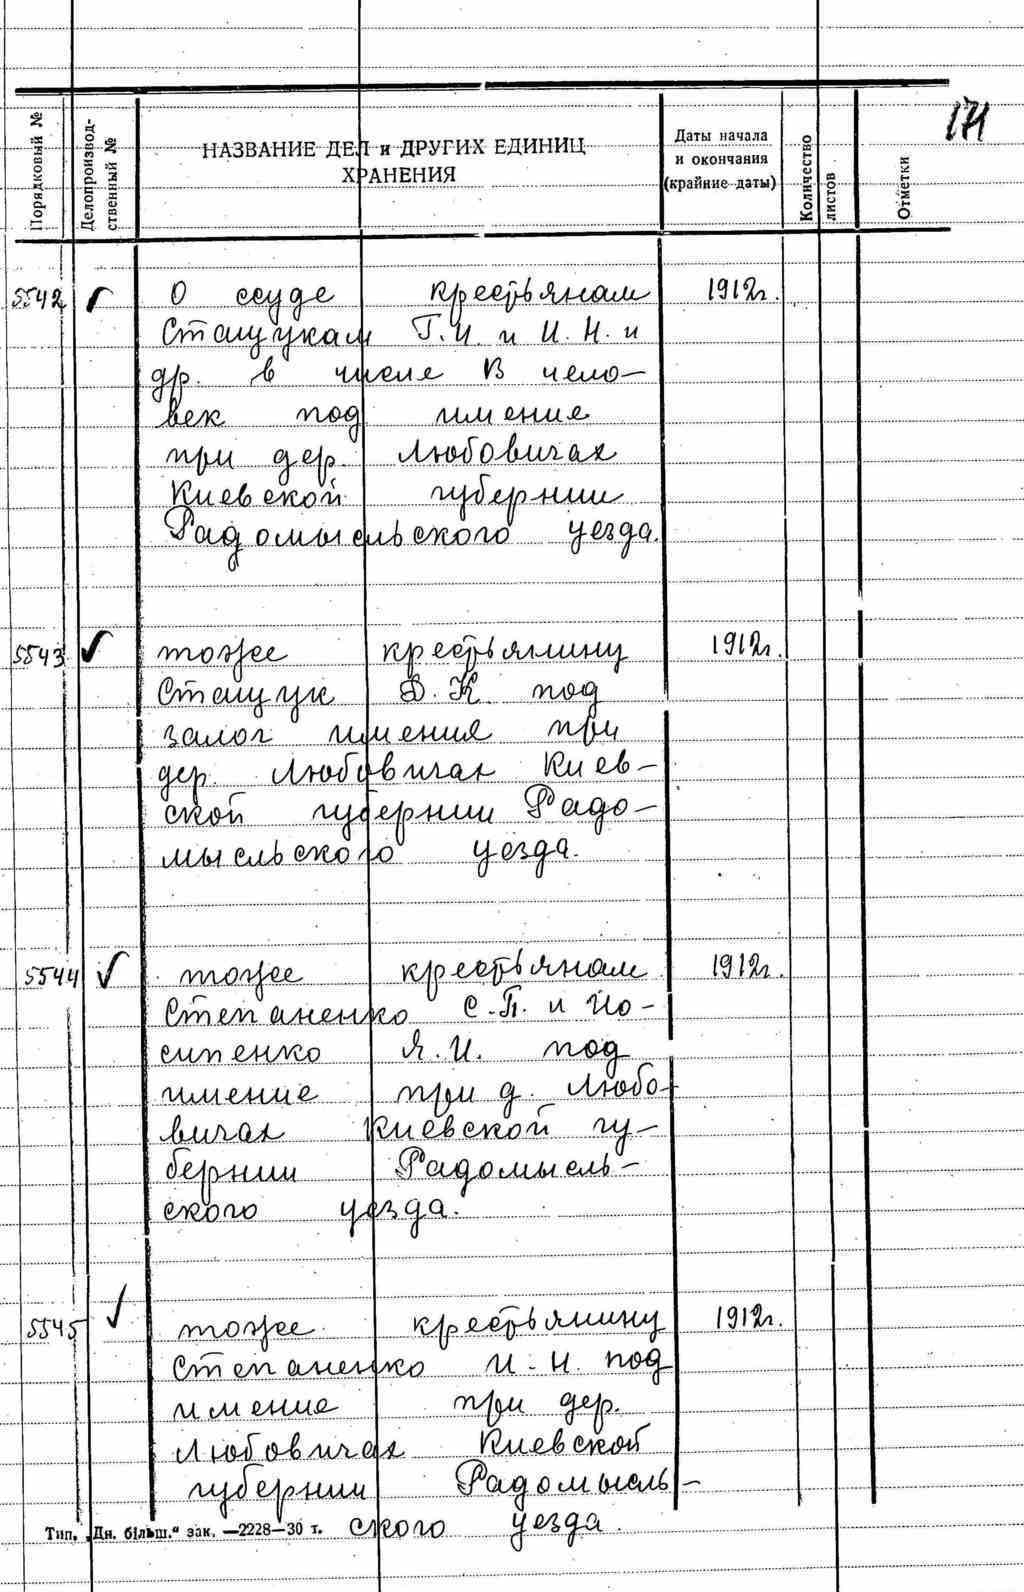 171
Порядковый №
Делопроизвод-
ственный №
НАЗВАНИЕ ДЕЛ и ДРУГИХ ЕДИНИЦ
ХРАНЕНИЯ
Даты начала
и окончания
(крайние даты)
Количество
листов
Отметки
5542 О ссуде крестьянам 1912г.
Сташукам Г.И. и И.Н. и
др. в числе 13 чело-
век под имение
при дер. Любовичах
Киевской губернии
Радомысльского уезда.
5543 тоже крестьянину 1912г.
Сташук Д.К. под
залог имения при
дер. Любовичах Киев-
ской губернии Радо-
мысльского уезда.
5544 тоже крестьянам 1912г.
Степаненко С.П. и Йо-
сипенко Я.И. под
имение при д. Любо-
вичах Киевской гу-
бернии Радомысль-
ского уезда.
5545 тоже крестьянину 1912г.
Степаненко И.Н. под
имение при дер.
Любовичах Киевской
губернии Радомысль-
ского уезда.
Тип. „Дн. більш.“ зак. —2228—30 т.